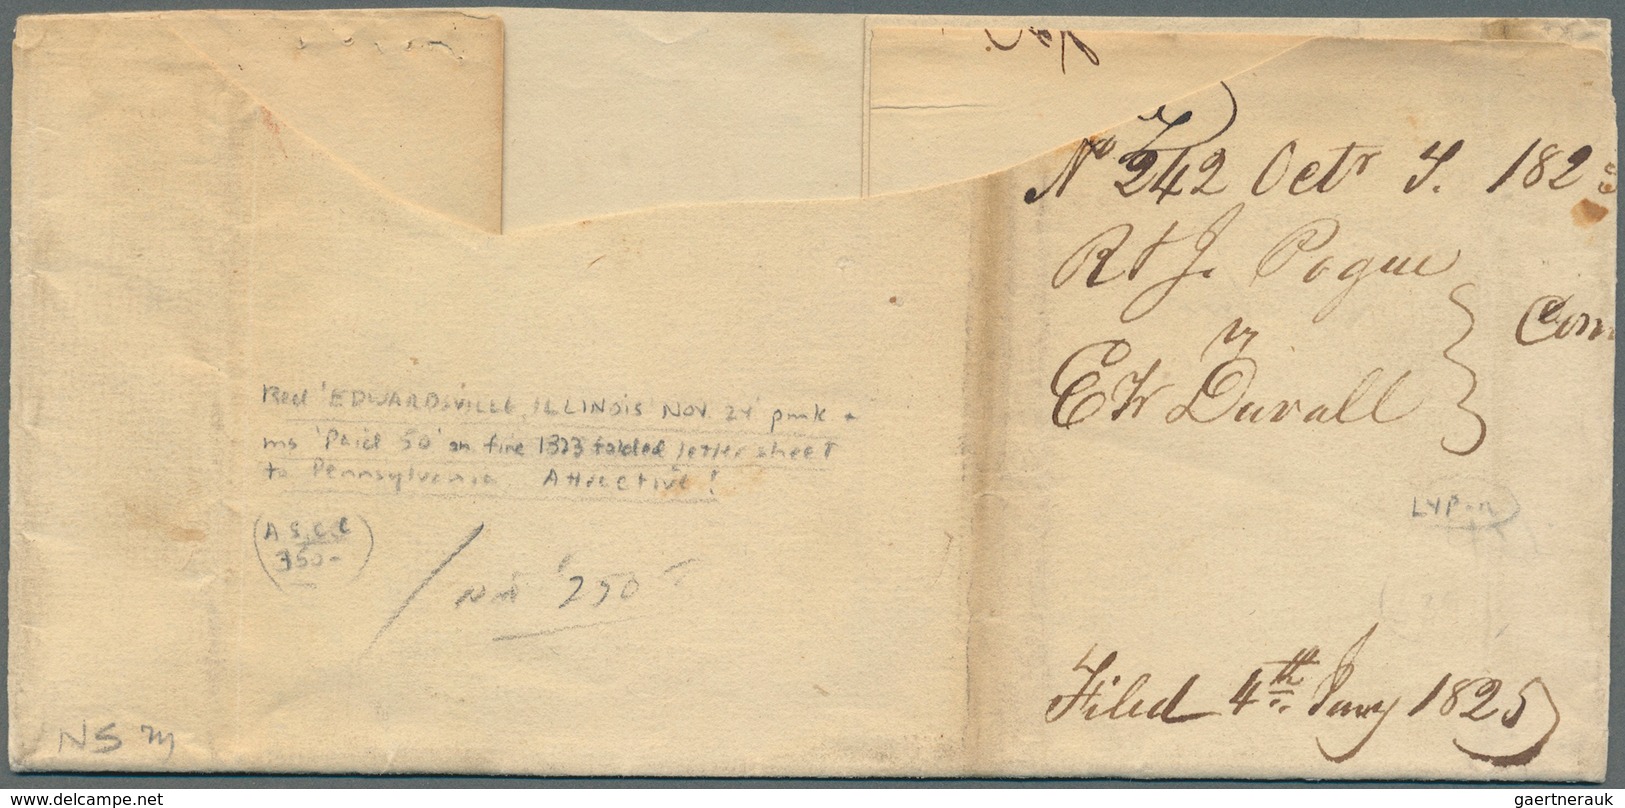 No 242 Octr T. 182
Rt J. Pogue
vs
E W Duvall
Com
Filed 4th. Jany 1825
Red 'EDWARDSVILLE, ILLINOIS NOV. 24' pmk +
ms 'Paid 50' on fine 1823 folded letter sheet
to Pennsylvania. Attractive!
A.S.C.C
350-
250-
LYP-n
NS m
delcampe.net
gaertnerauk